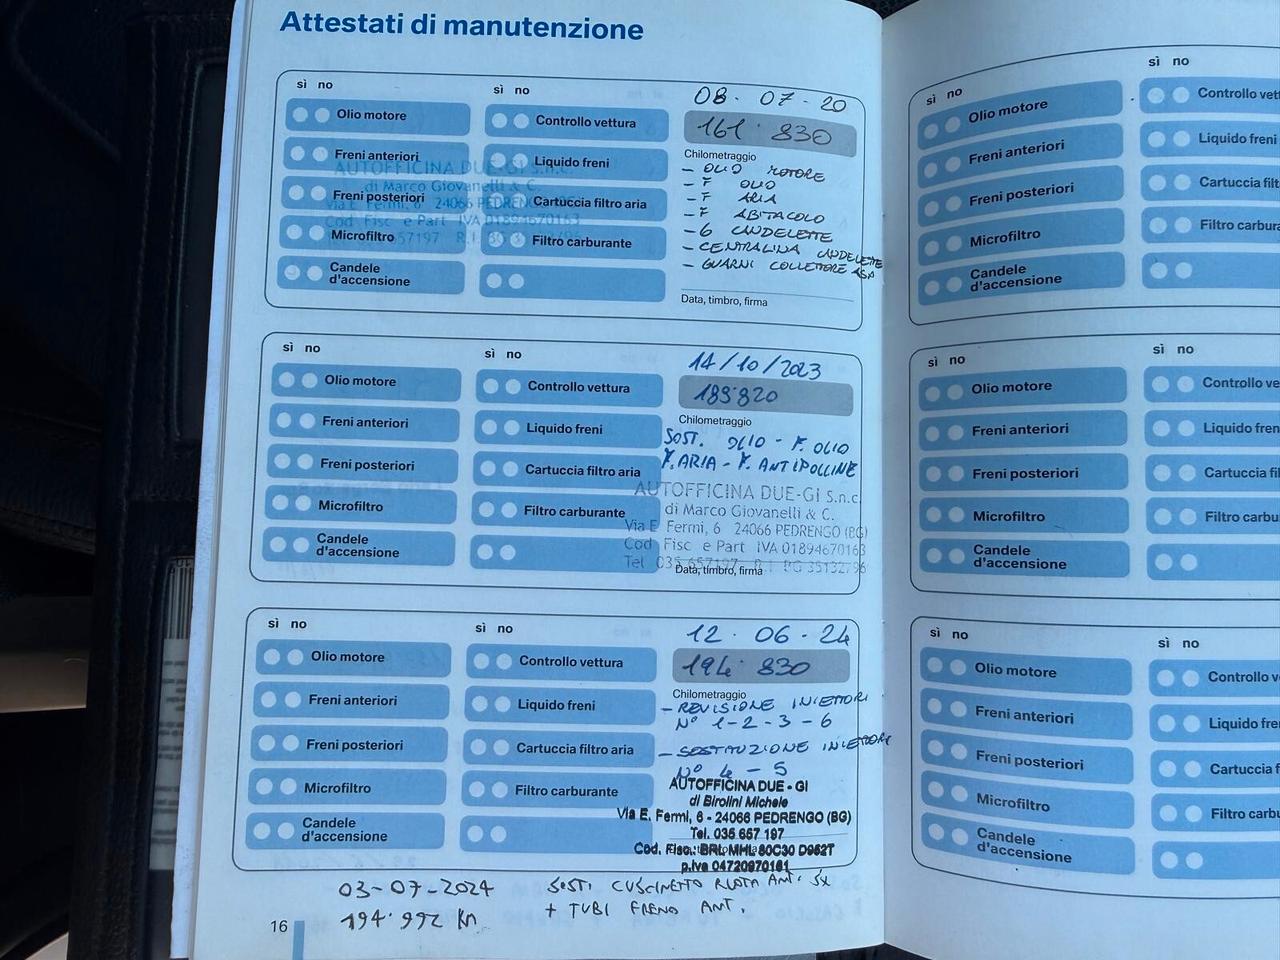 Attestati di manutenzione
sì no
sì no
Olio motore
Freni anteriori
Freni posteriori
Microfiltro
Candele
d'accensione
Controllo vettura
Liquido freni
Cartuccia filtro aria
Filtro carburante
AUTOFFICINA DUE-GI S.n.c.
di Marco Giovanelli & C.
Via E. Fermi, 6 24066 PEDRENGO
Cod Fisc e Part IVA 01894670163
08. 07. 20
161.830
Chilometraggio
- OLIO MOTORE
- F OLIO
- F ARIA
- F ABITACOLO
- 6 CANDELETTE
- CENTRALINA CANDELETTE
- GUARNI COLLETTORE ASP
Data, timbro, firma
sì no
sì no
Olio motore
Freni anteriori
Freni posteriori
Microfiltro
Candele
d'accensione
Controllo vettura
Liquido freni
Cartuccia filtro aria
Filtro carburante
14/10/2023
Chilometraggio
SOST. OLIO - F. OLIO
F. ARIA - F. ANTIPOLLINE
AUTOFFICINA DUE-GI S.n.c.
di Marco Giovanelli & C.
Via E. Fermi, 6 24066 PEDRENGO (BG)
Cod Fisc e Part IVA 01894670163
Tel 035 657197 R.I. BG 35132/96
Data, timbro, firma
sì no
sì no
Olio motore
Freni anteriori
Freni posteriori
Microfiltro
Candele
d'accensione
Controllo vettura
Liquido freni
Cartuccia filtro aria
Filtro carburante
12. 06. 24
194.830
Chilometraggio
- REVISIONE INIETTORI
N° 1-2-3-6
- SOSTITUZIONE INIETTORI
N° 4 - 5
AUTOFFICINA DUE - GI
di Birolini Michele
Via E. Fermi, 6 - 24066 PEDRENGO (BG)
Tel. 035 657 197
Cod. Fisc.: BRL MHL 80C30 D952T
p.iva 04720970161
03-07-2024
194.992 km
SOST. CUSCINETTO RUOTA ANT. SX
+ TUBI FRENO ANT.
16
sì no
sì no
Olio motore
Freni anteriori
Freni posteriori
Microfiltro
Candele
d'accensione
Controllo vett
Liquido freni
Cartuccia filt
Filtro carbura
sì no
sì no
Olio motore
Freni anteriori
Freni posteriori
Microfiltro
Candele
d'accensione
Controllo ve
Liquido fren
Cartuccia fil
Filtro carbu
sì no
sì no
Olio motore
Freni anteriori
Freni posteriori
Microfiltro
Candele
d'accensione
Controllo v
Liquido fre
Cartuccia f
Filtro carb